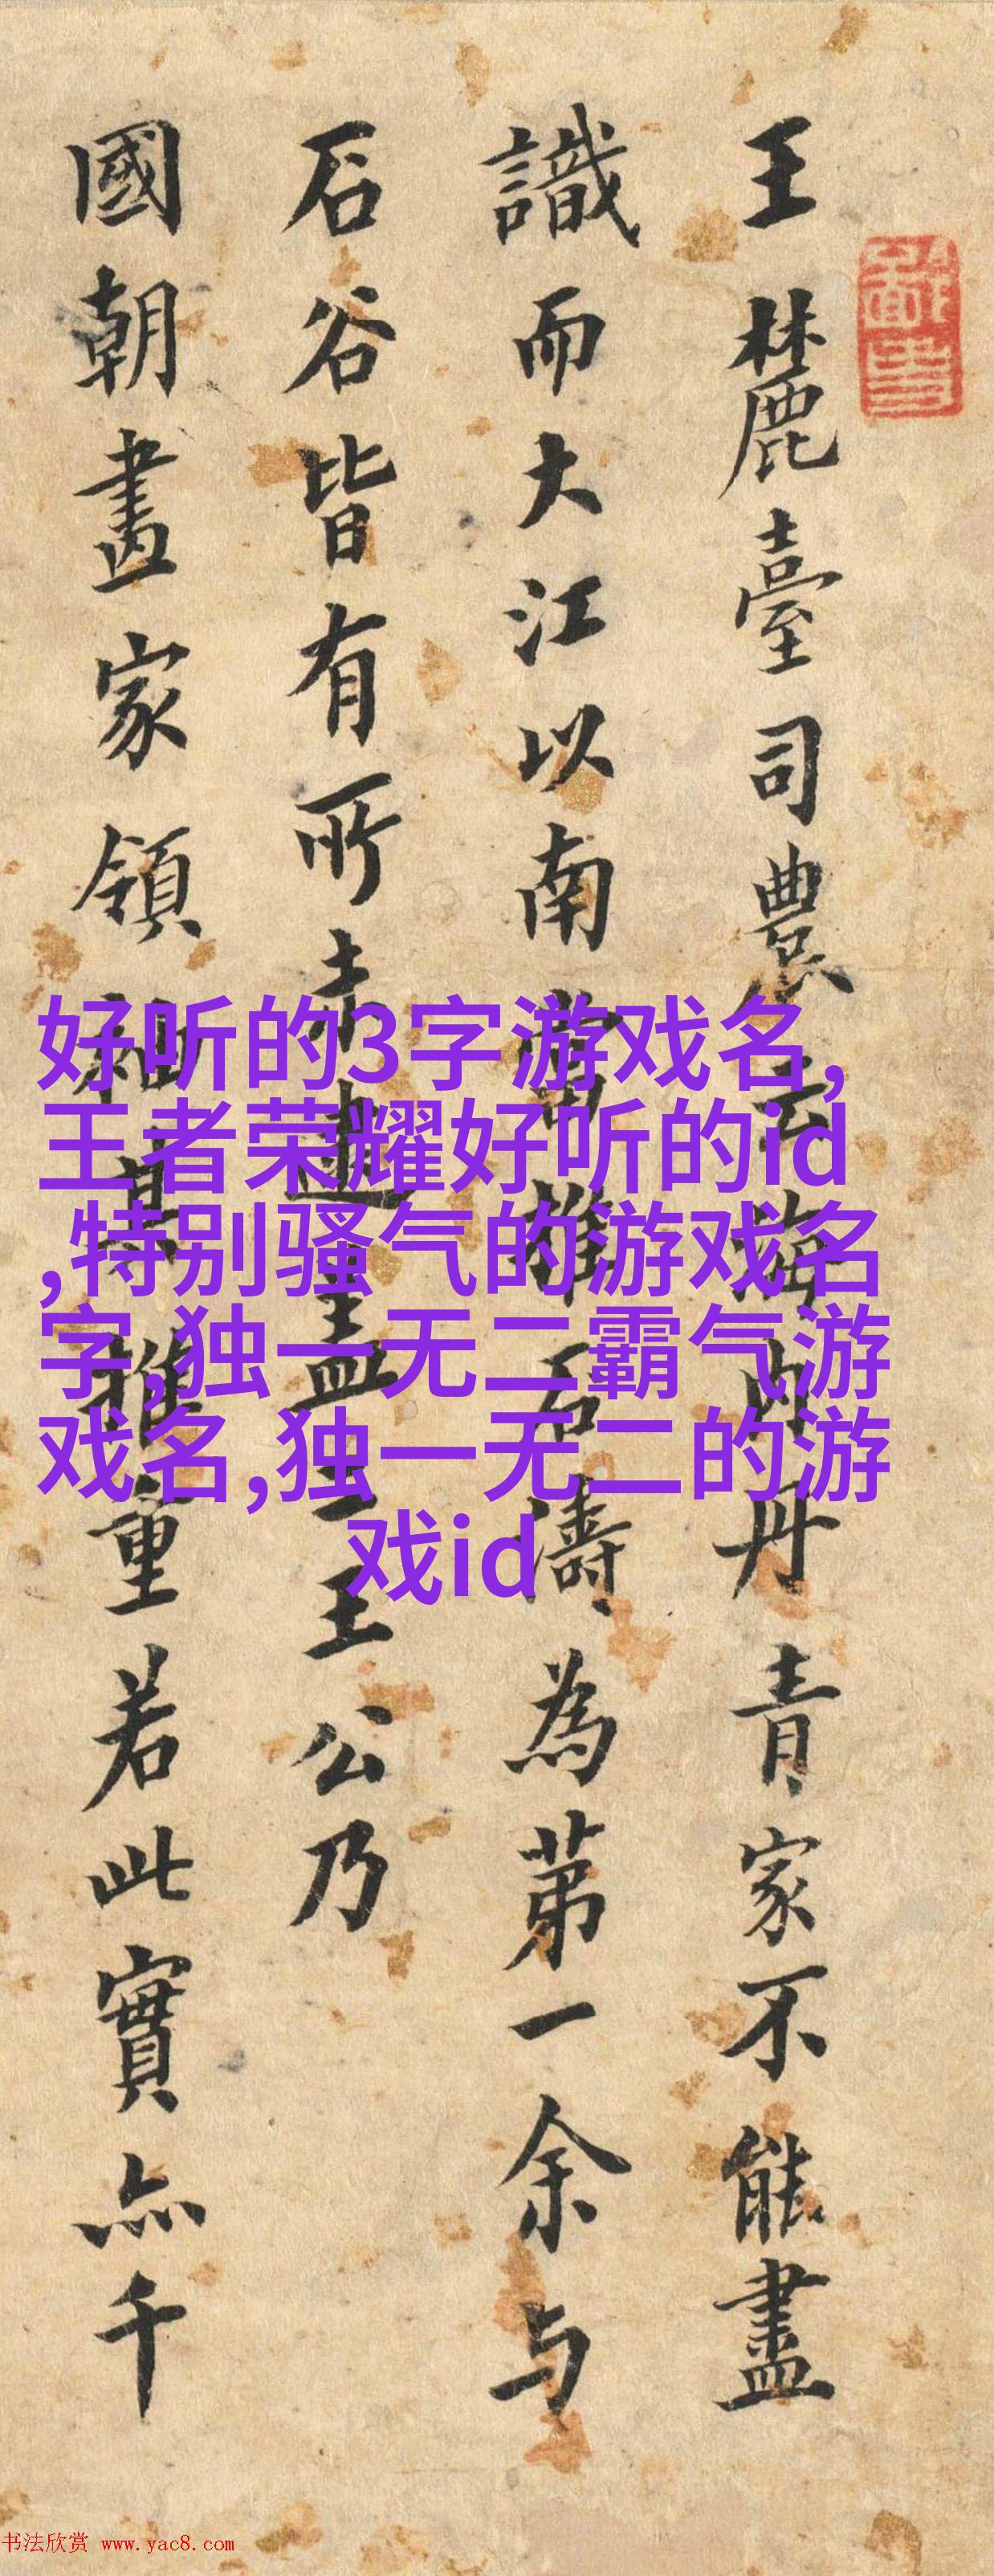 王麓臺司農云海內丹青家不能盡
識而大江以南當推石濤為第一余与
石谷皆有所未逮盖二王公乃
國朝畫家領袖其推重若此實亦千
好听的3字游戏名,
王者荣耀好听的id
,特别骚气的游戏名
字,独一无二霸气游
戏名,独一无二的游
戏id
书法欣赏 www.yac8.com